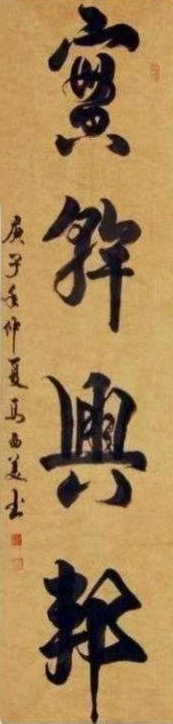 實幹興邦
庚子年仲夏馬西美书